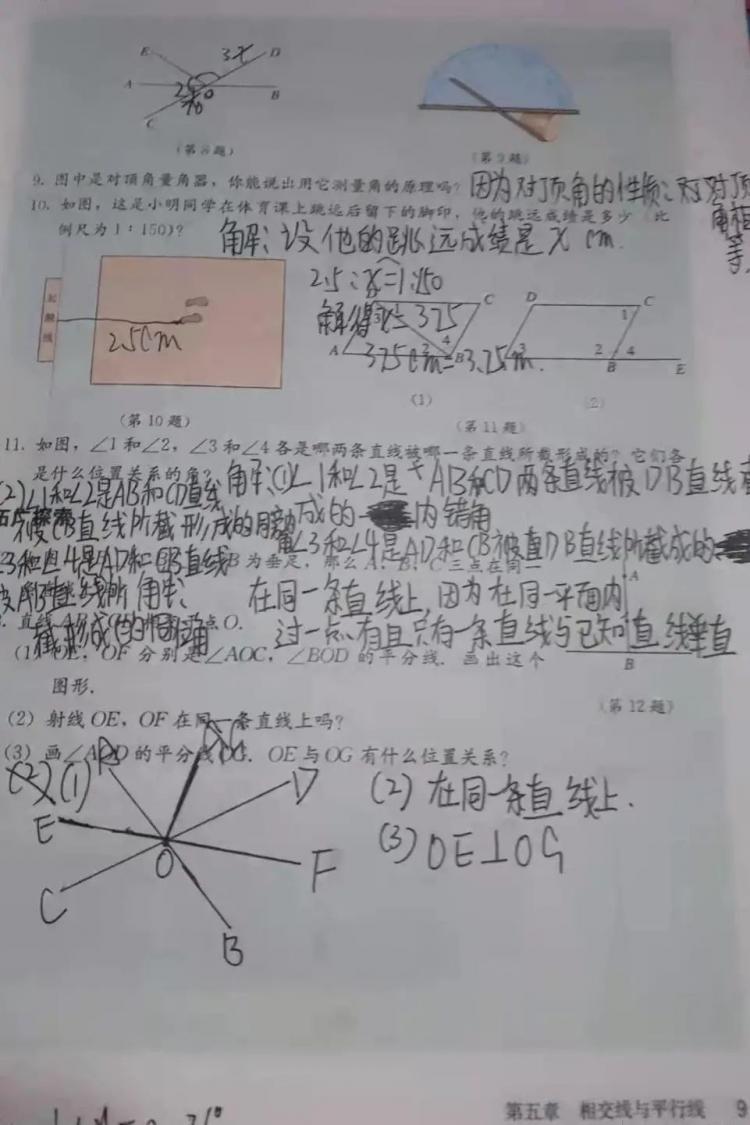 E
3x
D
A
2x
O
B
C
(第8题)
(第9题)
9. 图中是对顶角量角器，你能说出用它测量角的原理吗？
因为对顶角的性质：对顶角相等.
10. 如图，这是小明同学在体育课上跳远后留下的脚印，他的跳远成绩是多少（比
例尺为1：150）？
解：设他的跳远成绩是x cm.
2.5：x=1:150
解得x=375
375cm=3.75m.
2.5cm
起
跳
线
C
A
2
4
B
D
C
1
3
2
4
B
E
(1)
(2)
(第10题)
(第11题)
11. 如图，∠1和∠2，∠3和∠4各是哪两条直线被哪一条直线所截形成的？它们各
是什么位置关系的角？
解：(1)∠1和∠2是AB和CD两条直线被DB直线
成的内错角
∠3和∠4是AD和CB被直DB直线所截成的
(2)∠1和∠2是AB和CD直线
被CB直线所截形成的
∠3和∠4是AD和CB直线
被AB直线所
截形成的同
B为垂足，那么A，B，C三点在同一
解：在同一条直线上，因为在同一平面内
过一点有且只有一条直线与已知直线垂直
A
B
点O.
(1) OE，OF分别是∠AOC，∠BOD的平分线. 画出这个
图形.
(第12题)
(2) 射线OE，OF在同一条直线上吗？
(3) 画∠AOD的平分线OG. OE与OG有什么位置关系？
(1)
A
G
D
E
O
F
C
B
(2) 在同一条直线上.
(3) OE⊥OG
第五章 相交线与平行线 9